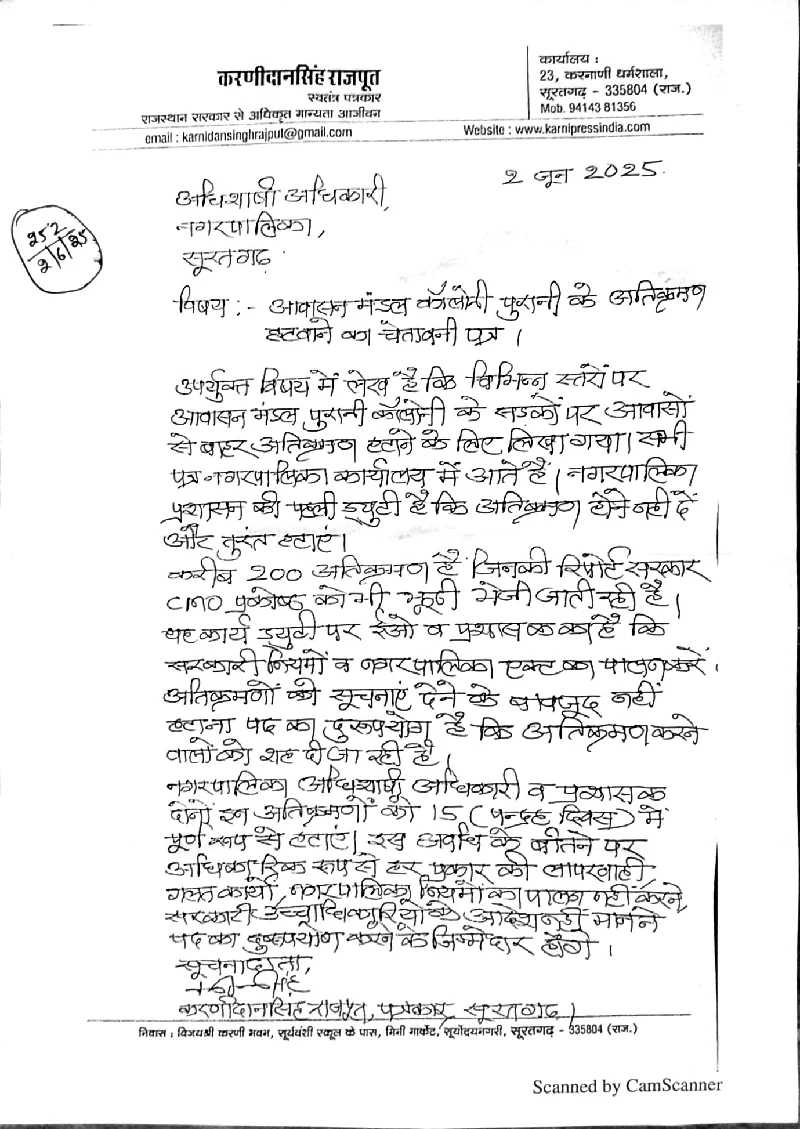 करणीदानसिंह राजपूत
स्वतंत्र पत्रकार
राजस्थान सरकार से अधिकृत मान्यता आजीवन
email : karnidansinghrajput@gmail.com
कार्यालय :
23, करनाणी धर्मशाला,
सूरतगढ़ - 335804 (राज.)
Mob. 94143 81356
Website : www.karnipressindia.com
2 जून 2025.
अधिशाषी अधिकारी,
नगरपालिका,
सूरतगढ़.
252
2/6/25
विषय :- आवासन मंडल कॉलोनी पुरानी के अतिक्रमण
हटवाने का चेतावनी पत्र ।
उपर्युक्त विषय में लेख है कि विभिन्न स्तरों पर
आवासन मंडल पुरानी कॉलोनी के सड़कों पर आवासों
से बाहर अतिक्रमण हटाने के लिए लिखा गया। सभी
पत्र नगरपालिका कार्यालय में आते हैं। नगरपालिका
प्रशासन की पहली ड्युटी है कि अतिक्रमण होने नहीं दें
और तुरंत हटाएं।
करीब 200 अतिक्रमण हैं जिनकी रिपोर्ट सरकार
CMO प्रकोष्ठ को भी झूठी भेजी जाती रही है।
यह कार्य ड्युटी पर ईओ व प्रशासक का है कि
सरकारी नियमों व नगरपालिका एक्ट का पालन करें.
अतिक्रमणों की सूचनाएं देने के बावजूद नहीं
हटाना पद का दुरूपयोग है कि अतिक्रमण करने
वालों को शह दी जा रही है।
नगरपालिका अधिशाषी अधिकारी व प्रशासक
दोनों इन अतिक्रमणों को 15 (पन्द्रह दिवस) में
पूर्ण रूप से हटाएं। इस अवधि के बीतने पर
अधिकारिक रूप से हर प्रकार की लापरवाही
गलत कार्यों, नगरपालिका नियमों का पालन नहीं करने,
सरकारी उच्चाधिकारियों के आदेश नहीं मानने
पद का दुरूपयोग करने के जिम्मेदार होंगे ।
सूचनादाता,
करणीदानसिंह राजपूत, पत्रकार, सूरतगढ़।
निवास : विजयश्री करणी भवन, सूर्यवंशी स्कूल के पास, मिनी मार्केट, सूर्योदयनगरी, सूरतगढ़ - 335804 (राज.)
Scanned by CamScanner